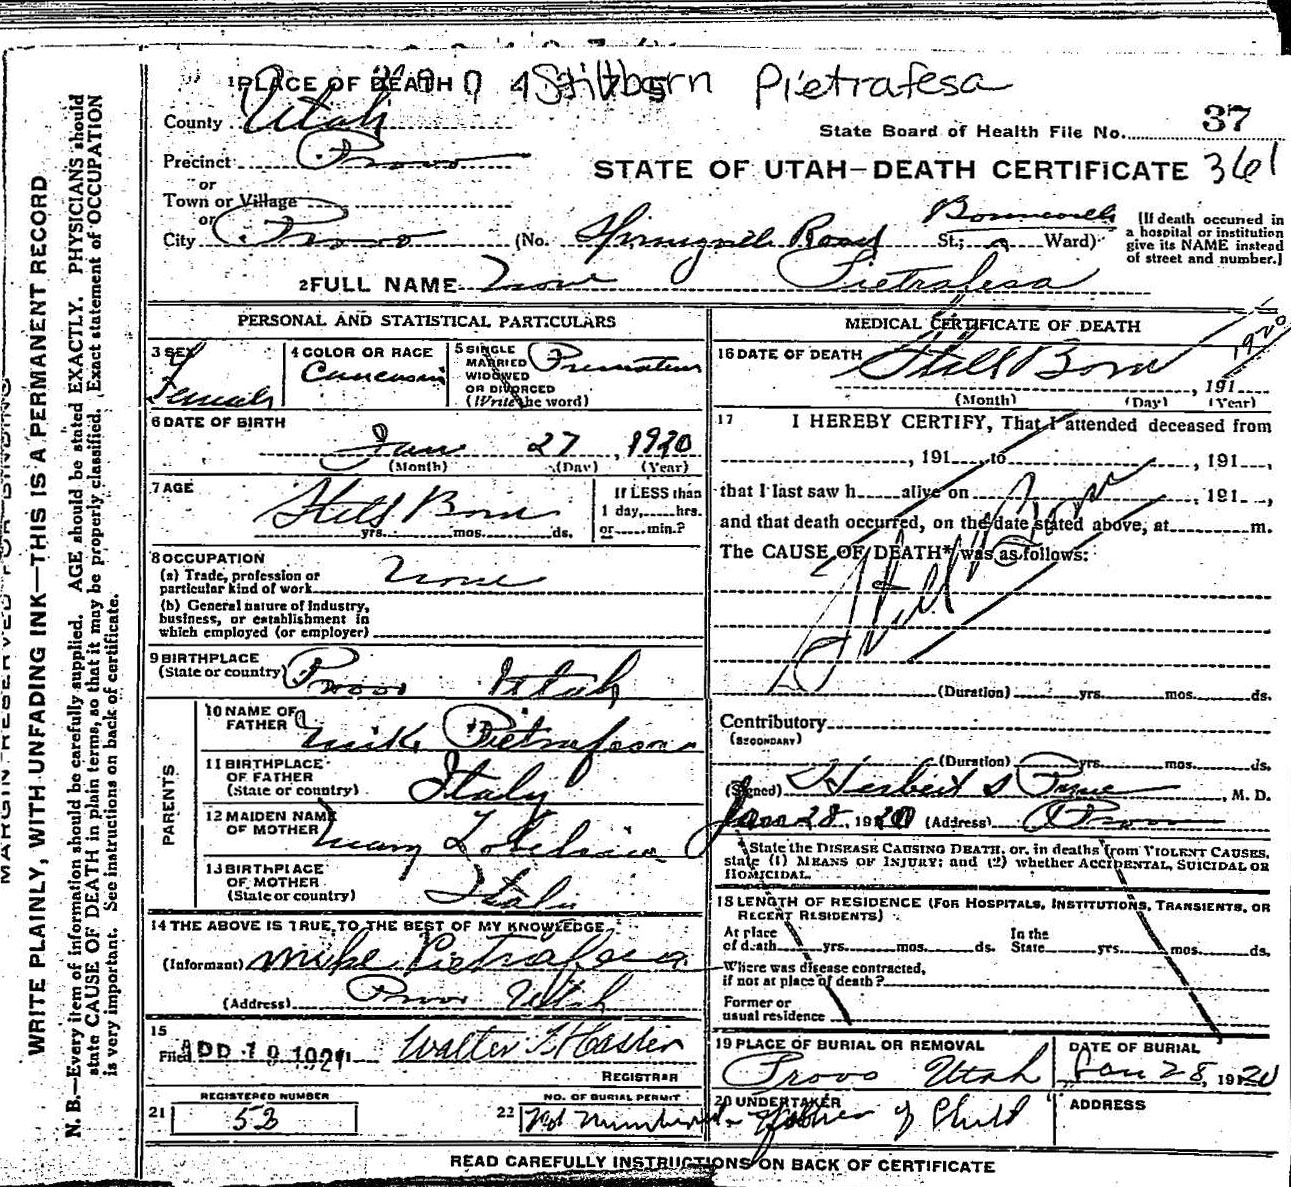 Stillborn Pietrafesa
1 PLACE OF DEATH
County Utah
State Board of Health File No. 37
Precinct Provo
STATE OF UTAH—DEATH CERTIFICATE 361
or
Town or Village
or
City Provo (No. Springville Road St.; Ward)
[If death occurred in
a hospital or institution
give its NAME instead
of street and number.]
2 FULL NAME None Pietrafesa
MARGIN RESERVED FOR BINDING
WRITE PLAINLY, WITH UNFADING INK—THIS IS A PERMANENT RECORD
N. B.—Every item of information should be carefully supplied. AGE should be stated EXACTLY. PHYSICIANS should
state CAUSE OF DEATH in plain terms, so that it may be properly classified. Exact statement of OCCUPATION
is very important. See instructions on back of certificate.
PERSONAL AND STATISTICAL PARTICULARS
3 SEX
Female
4 COLOR OR RACE
Caucasian
5 SINGLE
MARRIED
WIDOWED
OR DIVORCED
(Write the word)
Premature
6 DATE OF BIRTH
Jan 27, 1920
(Month) (Day) (Year)
7 AGE
Still Born
yrs. mos. ds.
If LESS than
1 day, hrs.
or min.?
8 OCCUPATION
(a) Trade, profession or
particular kind of work None
(b) General nature of Industry,
business, or establishment in
which employed (or employer)
9 BIRTHPLACE
(State or country) Provo Utah
PARENTS
10 NAME OF
FATHER Mike Pietrafesa
11 BIRTHPLACE
OF FATHER
(State or country) Italy
12 MAIDEN NAME
OF MOTHER Mary
13 BIRTHPLACE
OF MOTHER
(State or country) Italy
14 THE ABOVE IS TRUE TO THE BEST OF MY KNOWLEDGE
(Informant) Mike Pietrafesa
(Address) Provo Utah
15
Filed Walter T Hasler
REGISTRAR
REGISTERED NUMBER
21 53
NO. OF BURIAL PERMIT
22 Not Numbered
MEDICAL CERTIFICATE OF DEATH
16 DATE OF DEATH Still Born 1920
, 191
(Month) (Day) (Year)
17 I HEREBY CERTIFY, That I attended deceased from
, 191 , to , 191 ,
that I last saw h alive on , 191 ,
and that death occurred, on the date stated above, at m.
The CAUSE OF DEATH* was as follows:
Still Born
(Duration) yrs. mos. ds.
Contributory
(SECONDARY)
(Duration) yrs. mos. ds.
(Signed) Herbert S Pyne, M. D.
Jan 28, 1920 (Address) Provo
*State the DISEASE CAUSING DEATH, or, in deaths from VIOLENT CAUSES,
state (1) MEANS OF INJURY; and (2) whether ACCIDENTAL, SUICIDAL OR
HOMICIDAL.
18 LENGTH OF RESIDENCE (FOR HOSPITALS, INSTITUTIONS, TRANSIENTS, OR
RECENT RESIDENTS)
At place
of death yrs. mos. ds.
In the
State yrs. mos. ds.
Where was disease contracted,
if not at place of death?
Former or
usual residence
19 PLACE OF BURIAL OR REMOVAL
Provo Utah
DATE OF BURIAL
Jan 28, 1920
20 UNDERTAKER
Father of Child
ADDRESS
READ CAREFULLY INSTRUCTIONS ON BACK OF CERTIFICATE